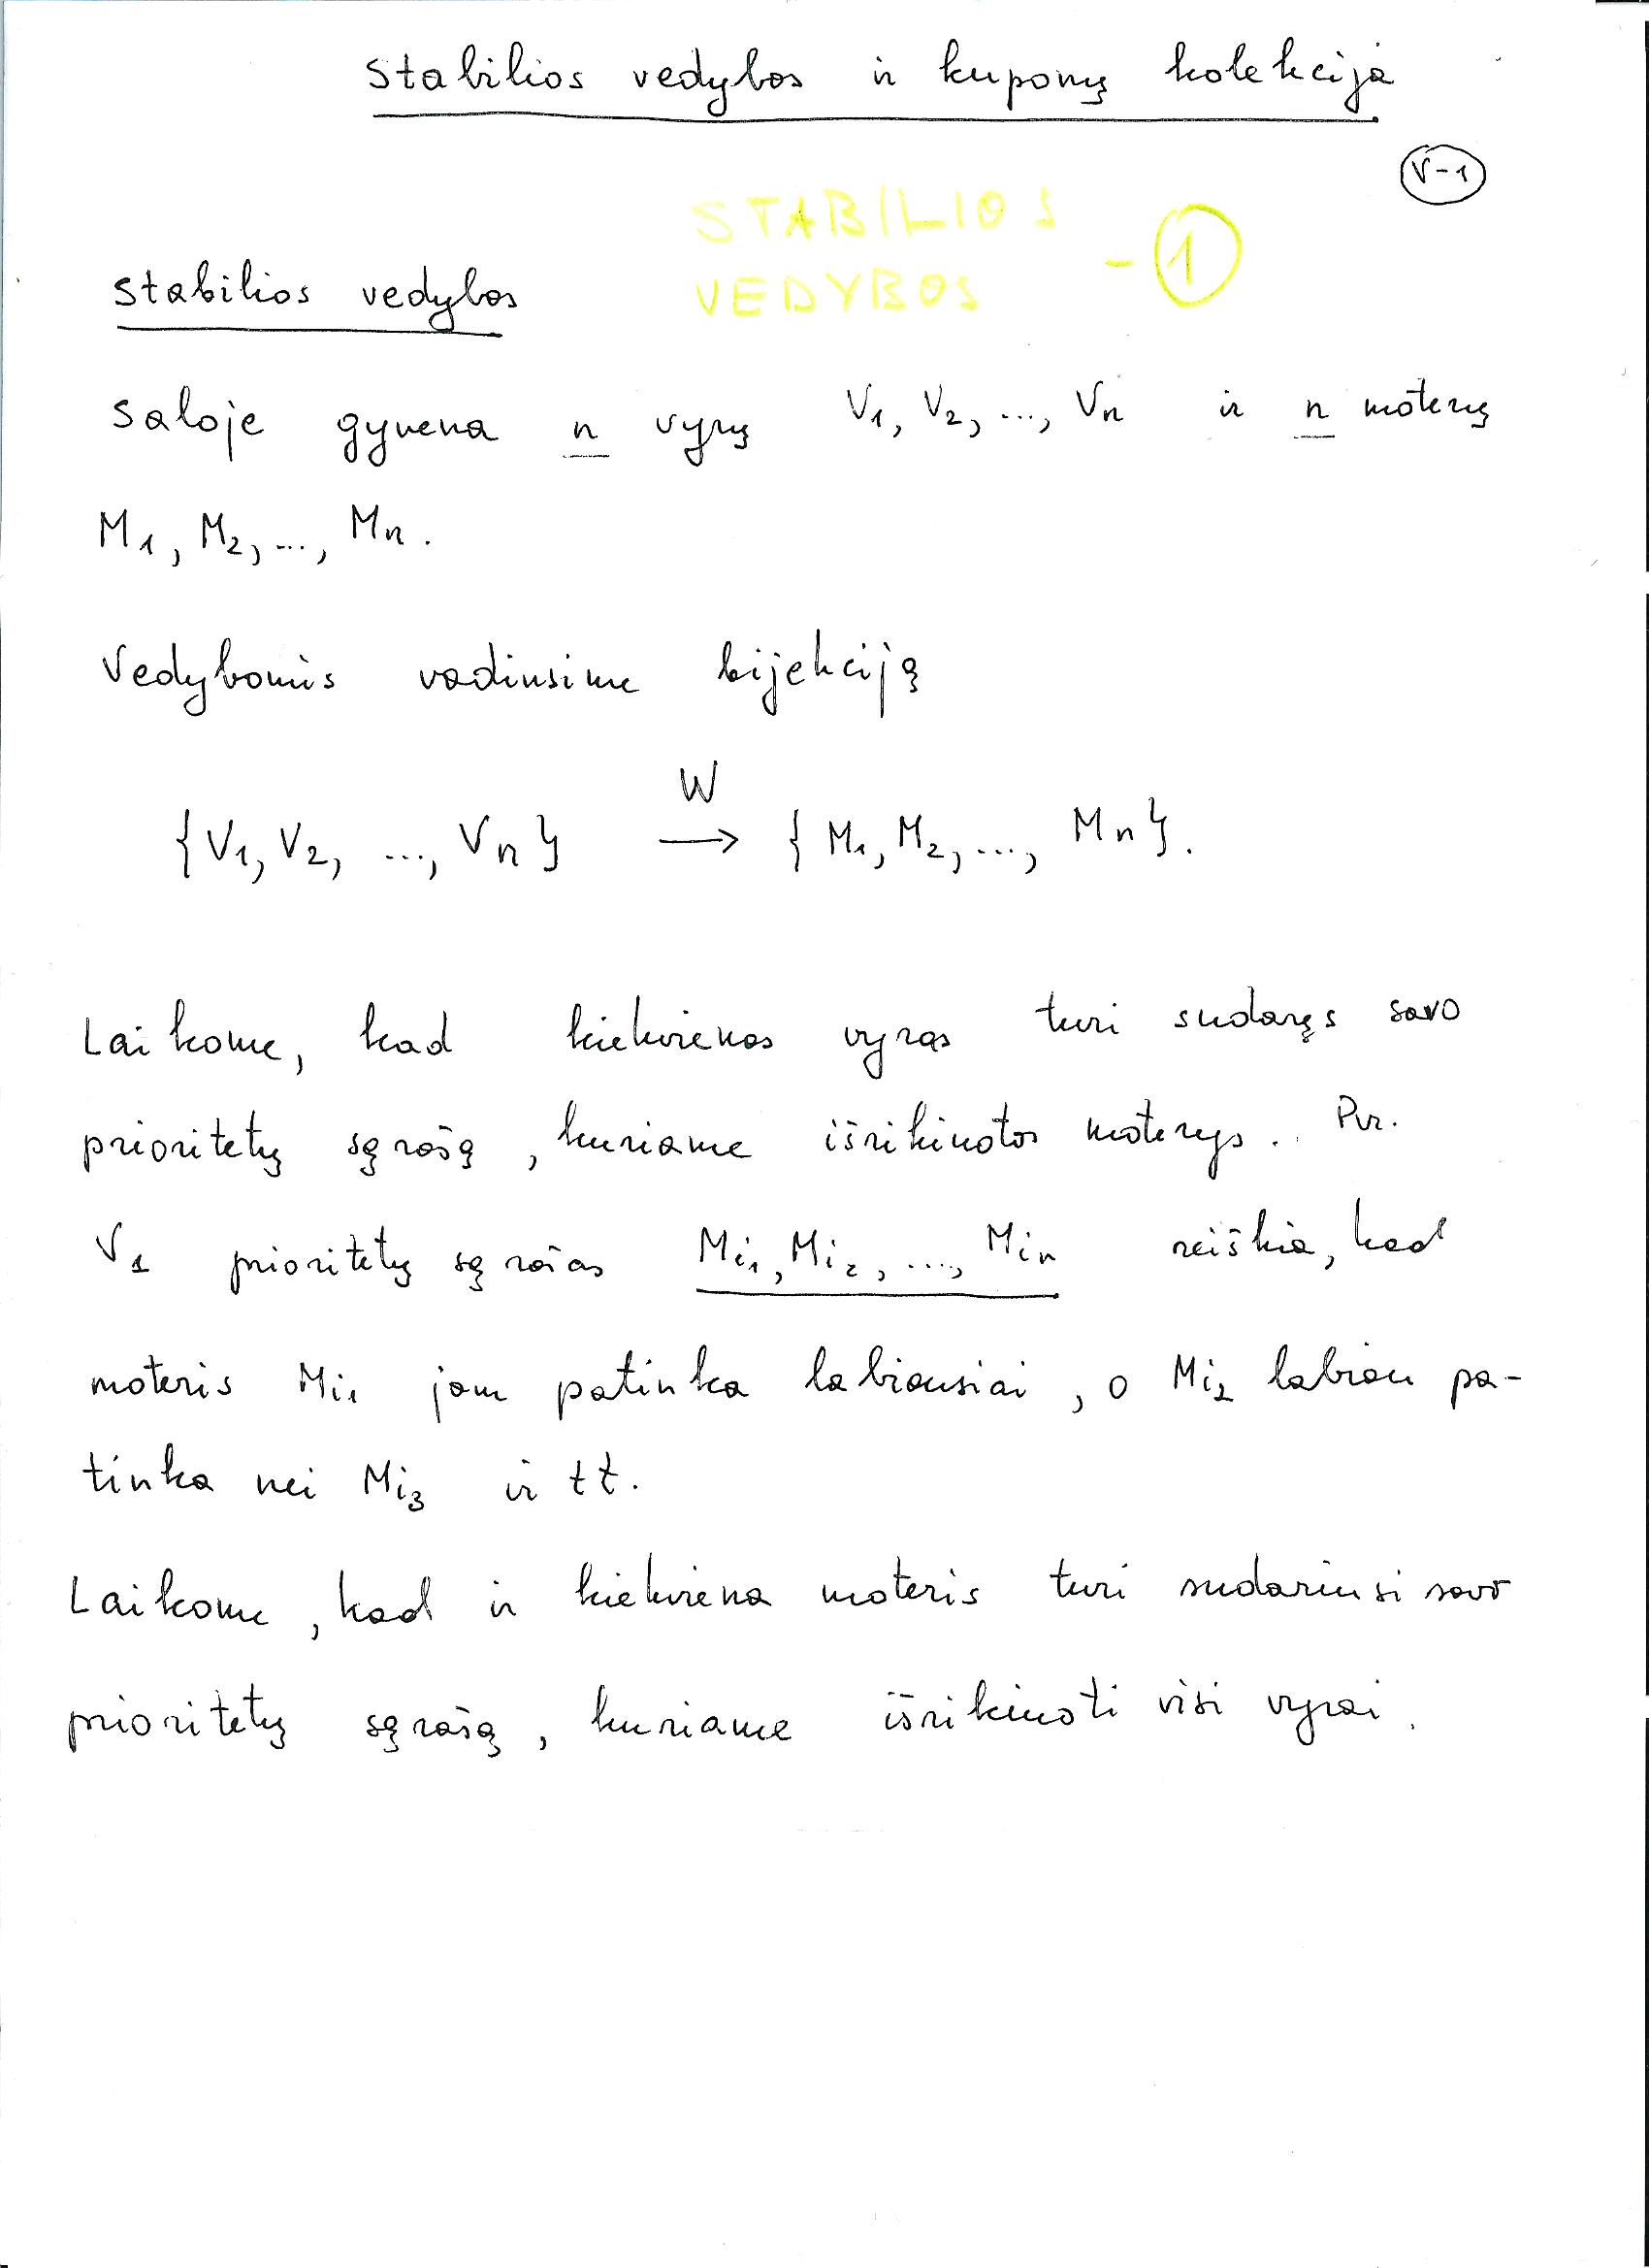 Stabilios vedybos ir kuponų kolekcija
V-1
STABILIOS
VEDYBOS - 1
Stabilios vedybos
Saloje gyvena n vyrų V1, V2, ..., Vn ir n moterų
M1, M2, ..., Mn.
Vedybomis vadinsime bijekciją
{V1, V2, ..., Vn} W→ {M1, M2, ..., Mn}.
Laikome, kad kiekvienas vyras turi sudaręs savo
prioritetų sąrašą, kuriame išrikiuotos moterys. Pvz.
V1 prioritetų sąrašas Mi1, Mi2, ..., Min reiškia, kad
moteris Mi1 jam patinka labiausiai, o Mi2 labiau pa-
tinka nei Mi3 ir tt.
Laikome, kad ir kiekviena moteris turi sudariusi savo
prioritetų sąrašą, kuriame išrikiuoti visi vyrai.